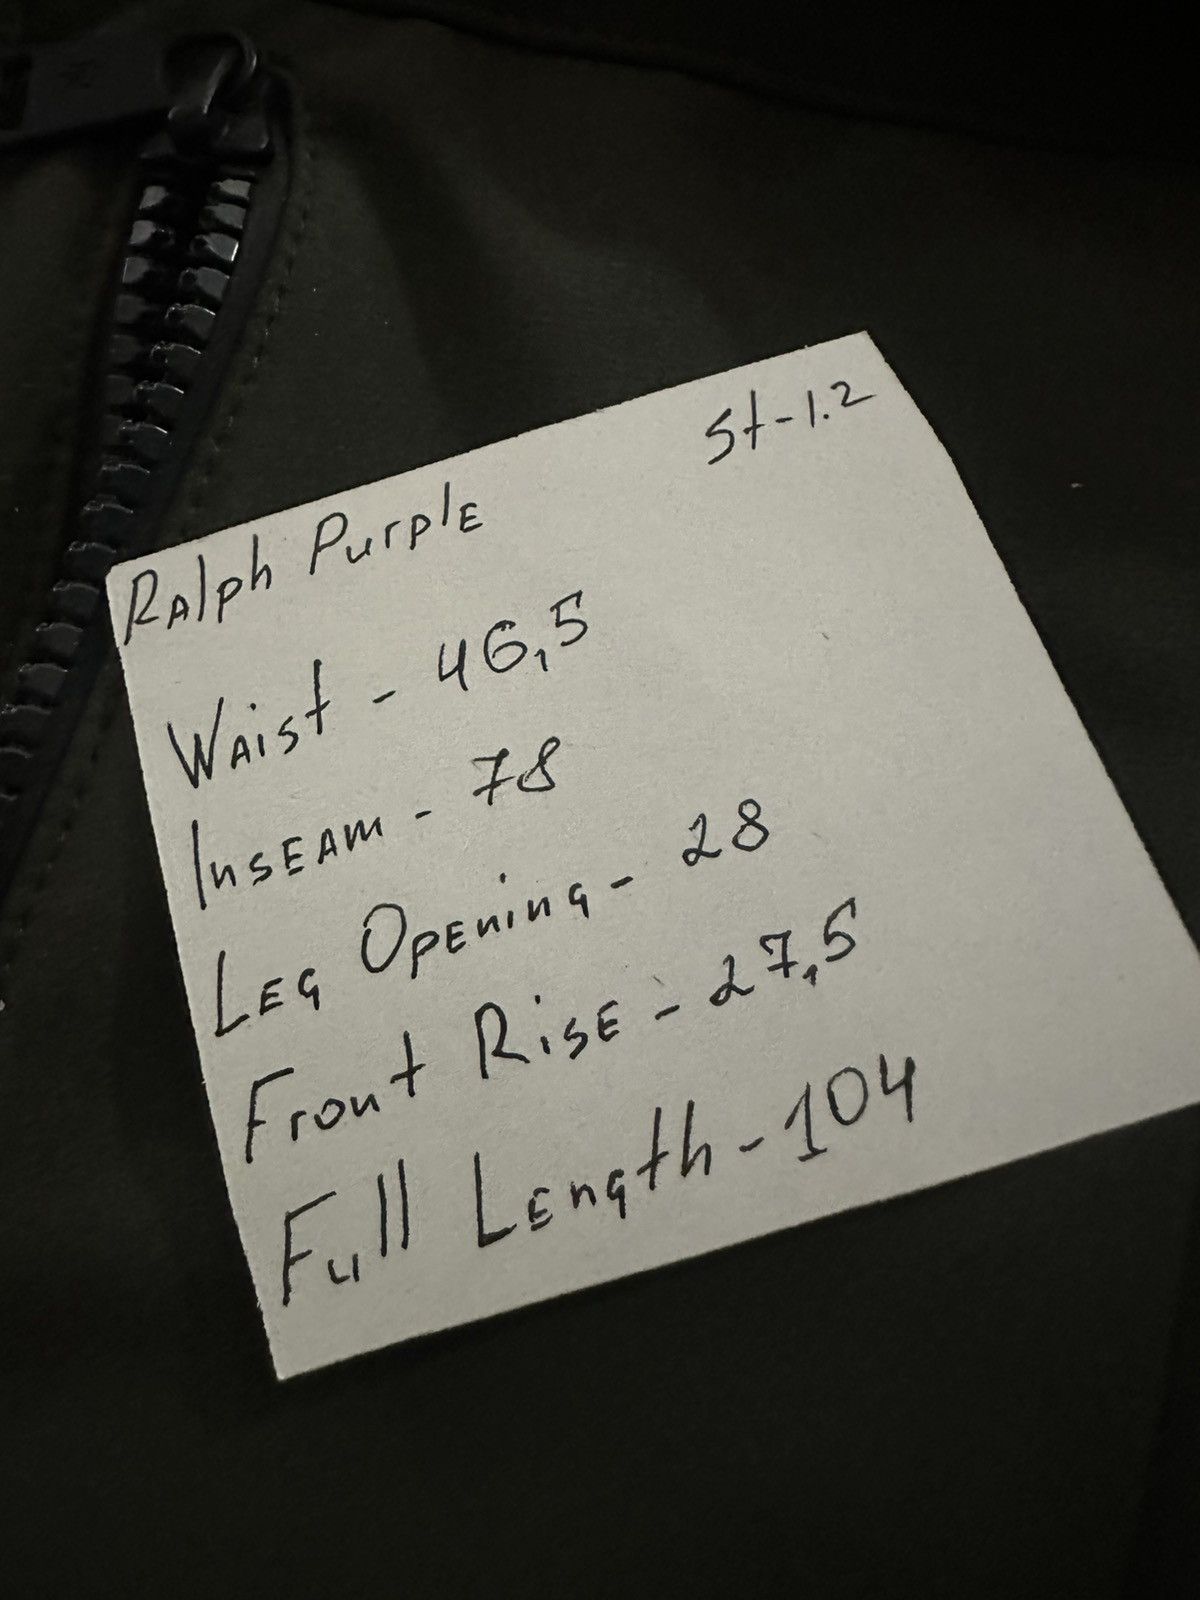 St-1.2
Ralph Purple
Waist - 46,5
Inseam - 78
Leg Opening - 28
Front Rise - 27,5
Full Length - 104